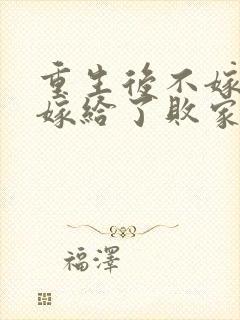 重生後不嫁
嫁給了敗家
福澤